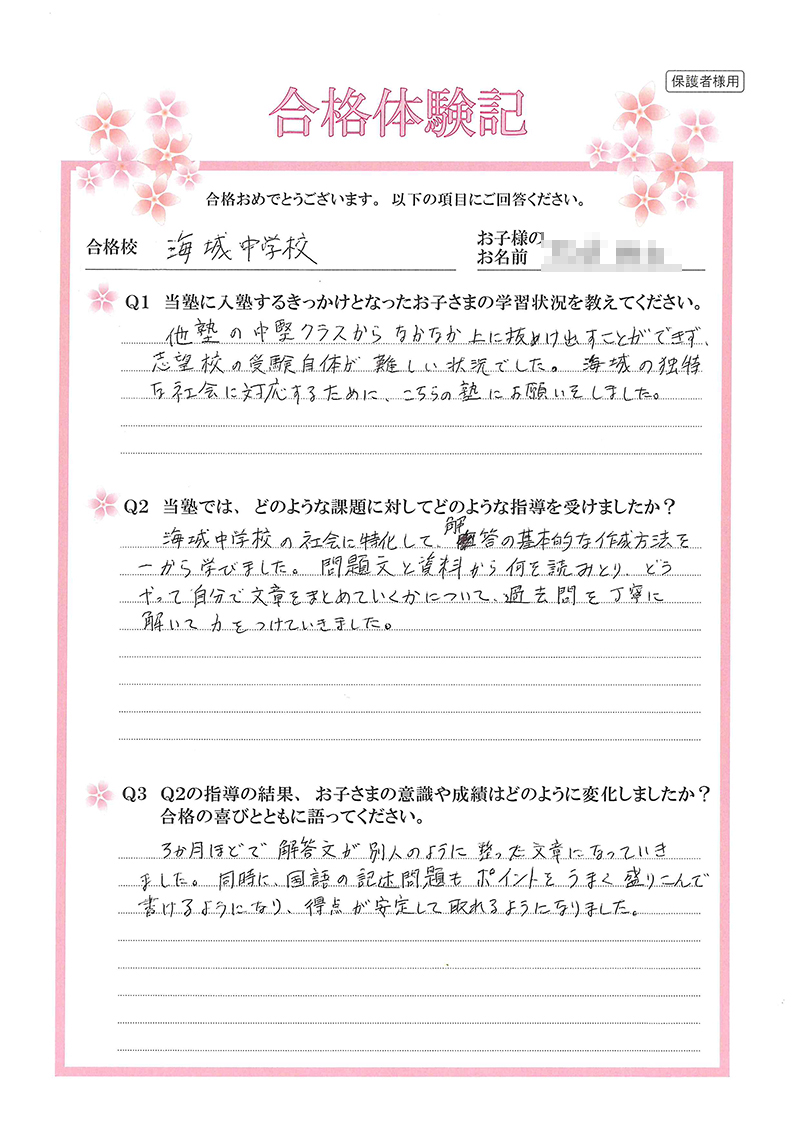 保護者様用
合格体験記
合格おめでとうございます。以下の項目にご回答ください。
合格校 海城中学校
お子様の
お名前
Q1 当塾に入塾するきっかけとなったお子さまの学習状況を教えてください。
他塾の中堅クラスからなかなか上に抜け出すことができず、
志望校の受験自体が難しい状況でした。海城の独特
な社会に対応するために、こちらの塾にお願いをしました。
Q2 当塾では、どのような課題に対してどのような指導を受けましたか？
海城中学校の社会に特化して、解答の基本的な作成方法を
一から学びました。問題文と資料から何を読みとり、どう
やって自分で文章をまとめていくかについて、過去問を丁寧に
解いて力をつけていきました。
Q3 Q2の指導の結果、お子さまの意識や成績はどのように変化しましたか？
合格の喜びとともに語ってください。
3か月ほどで解答文が別人のように整った文章になっていき
ました。同時に、国語の記述問題もポイントをうまく盛りこんで
書けるようになり、得点が安定して取れるようになりました。